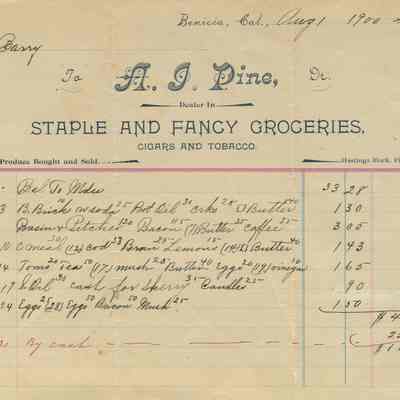 Benicia, Cal., Aug 1 1900
Barry
To A. J. Pine, Dr.
Dealer In
STAPLE AND FANCY GROCERIES,
CIGARS AND TOBACCO.
Produce Bought and Sold. Hastings Block, Fi
Bal To Mdse 33 28
3 B. Brick 10 w soda 25 Oil 30 crks 25 Butter 40 1 30
Basin & Pitcher Bacon 45 Butter 25 coffee 25 3 05
10 C meal cod Bran 25 Lemons 15 Butter 40 1 43
14 Toms 20 tea 50 (17) mush 25 Butter 40 Eggs 20 (19) vinegar 1 65
17 S Oil 30 cash for sherry 35 Candles 25 90
24 Eggs 25 (28) Eggs 50 Bacon 50 Mush 25 1 50
$4
By cash 2
$1